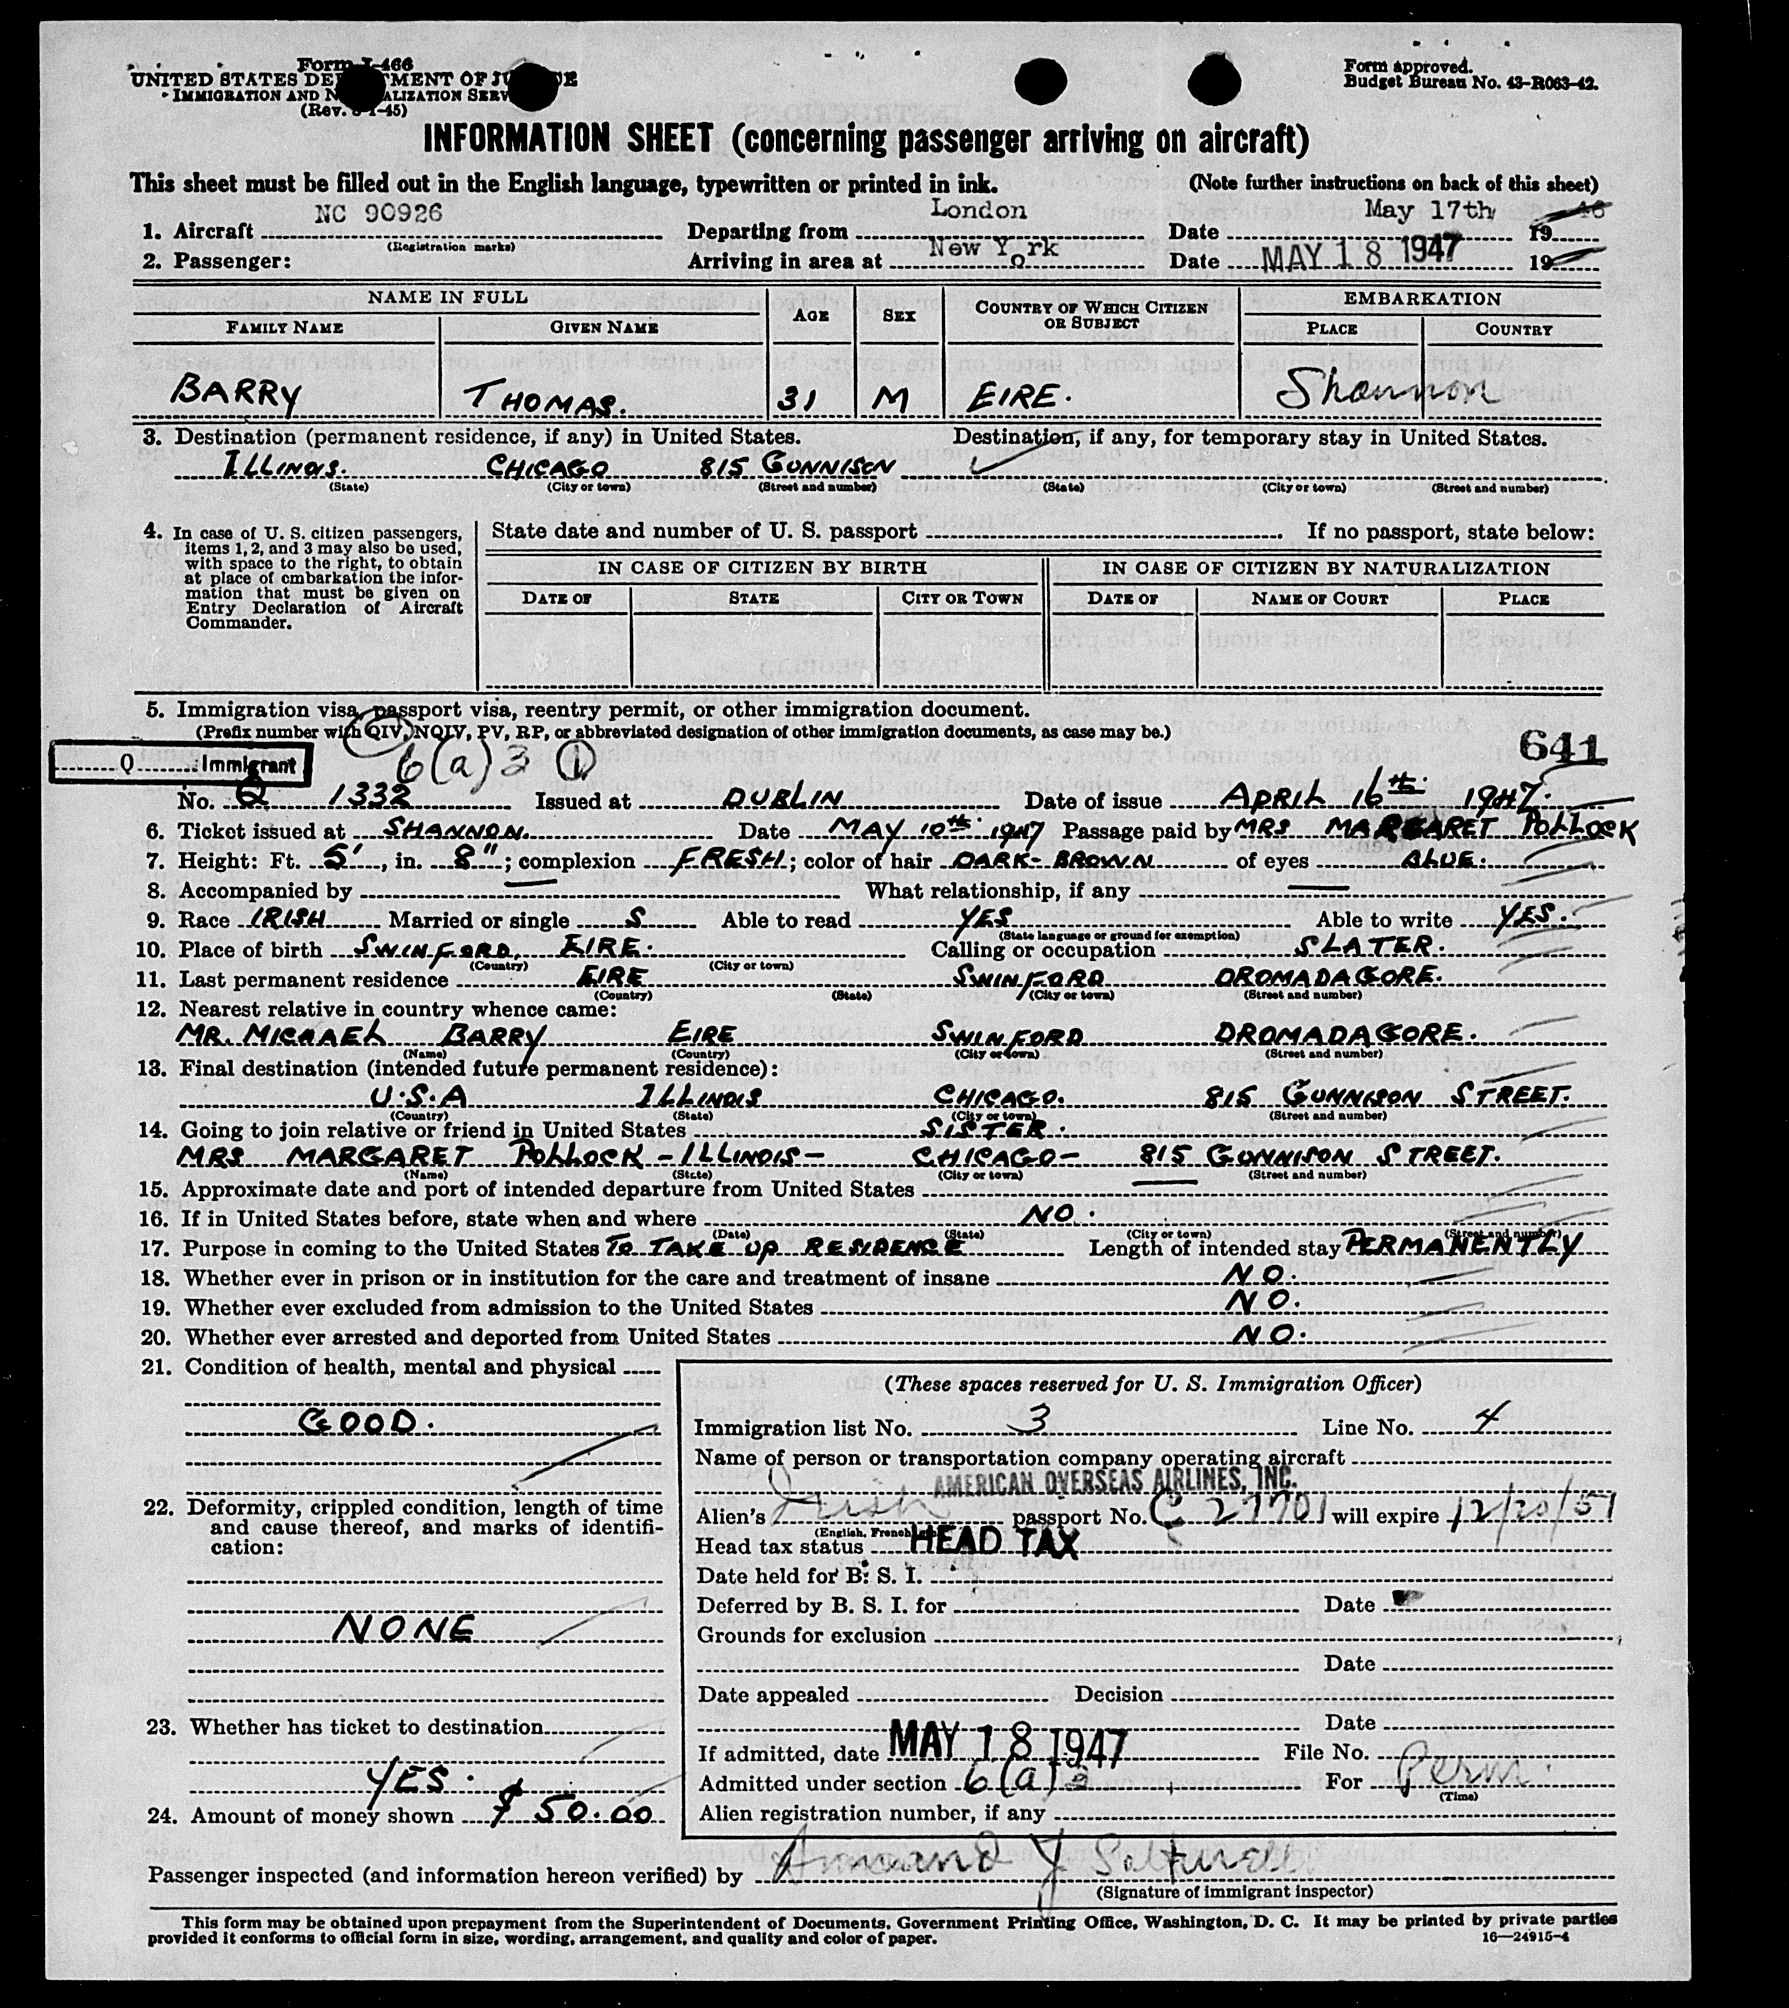 Form I-466
UNITED STATES DEPARTMENT OF JUSTICE
IMMIGRATION AND NATURALIZATION SERVICE
(Rev. -45)
Form approved.
Budget Bureau No. 43-R063-42.
INFORMATION SHEET (concerning passenger arriving on aircraft)
This sheet must be filled out in the English language, typewritten or printed in ink. (Note further instructions on back of this sheet)
1. Aircraft NC 90926 Departing from London Date May 17th 19 46
(Registration marks)
2. Passenger: Arriving in area at New York Date MAY 18 1947 19
NAME IN FULL AGE SEX COUNTRY OF WHICH CITIZEN OR SUBJECT EMBARKATION
FAMILY NAME GIVEN NAME PLACE COUNTRY
BARRY THOMAS. 31 M EIRE. Shannon
3. Destination (permanent residence, if any) in United States. Destination, if any, for temporary stay in United States.
ILLINOIS. CHICAGO 815 GUNNISON
(State) (City or town) (Street and number) (State) (City or town) (Street and number)
4. In case of U. S. citizen passengers, items 1, 2, and 3 may also be used, with space to the right, to obtain at place of embarkation the information that must be given on Entry Declaration of Aircraft Commander.
State date and number of U. S. passport If no passport, state below:
IN CASE OF CITIZEN BY BIRTH IN CASE OF CITIZEN BY NATURALIZATION
DATE OF STATE CITY OR TOWN DATE OF NAME OF COURT PLACE
5. Immigration visa, passport visa, reentry permit, or other immigration document.
(Prefix number with QIV, NQIV, PV, RP, or abbreviated designation of other immigration documents, as case may be.)
641
Q Immigrant 6(a)3 1
No. Q 1332 Issued at DUBLIN Date of issue APRIL 16th 1947.
6. Ticket issued at SHANNON. Date MAY 10th 1947 Passage paid by MRS MARGARET POLLOCK
7. Height: Ft. 5', in. 8"; complexion FRESH; color of hair DARK-BROWN of eyes BLUE.
8. Accompanied by — What relationship, if any —
9. Race IRISH Married or single S Able to read YES Able to write YES.
(State language or ground for exemption)
10. Place of birth SWINFORD, EIRE. Calling or occupation SLATER.
(Country) (City or town)
11. Last permanent residence EIRE SWINFORD DROMADAGORE.
(Country) (State) (City or town) (Street and number)
12. Nearest relative in country whence came:
MR. MICHAEL BARRY EIRE SWINFORD DROMADAGORE.
(Name) (Country) (City or town) (Street and number)
13. Final destination (intended future permanent residence):
U.S.A ILLINOIS CHICAGO. 815 GUNNISON STREET.
(Country) (State) (City or town) (Street and number)
14. Going to join relative or friend in United States SISTER.
MRS MARGARET POLLOCK - ILLINOIS - CHICAGO - 815 GUNNISON STREET.
(Name) (State) (City or town) (Street and number)
15. Approximate date and port of intended departure from United States —
16. If in United States before, state when and where NO.
(Date) (State) (City or town) (Street and number)
17. Purpose in coming to the United States TO TAKE UP RESIDENCE Length of intended stay PERMANENTLY
18. Whether ever in prison or in institution for the care and treatment of insane NO.
19. Whether ever excluded from admission to the United States NO.
20. Whether ever arrested and deported from United States NO.
21. Condition of health, mental and physical
GOOD.
22. Deformity, crippled condition, length of time and cause thereof, and marks of identification:
NONE
23. Whether has ticket to destination
YES.
24. Amount of money shown $ 50.00
(These spaces reserved for U. S. Immigration Officer)
Immigration list No. 3 Line No. 4
Name of person or transportation company operating aircraft
AMERICAN OVERSEAS AIRLINES, INC.
Alien's Irish passport No. C 27701 will expire 12/20/51
(English, French, etc.)
Head tax status HEAD TAX
Date held for B. S. I.
Deferred by B. S. I. for Date
Grounds for exclusion
Date
Date appealed Decision
Date
If admitted, date MAY 18 1947 File No.
Admitted under section 6(a)3 For Perm.
(Time)
Alien registration number, if any
Passenger inspected (and information hereon verified) by Armand J.
(Signature of immigrant inspector)
This form may be obtained upon prepayment from the Superintendent of Documents, Government Printing Office, Washington, D. C. It may be printed by private parties
provided it conforms to official form in size, wording, arrangement, and quality and color of paper. 16—24915-4